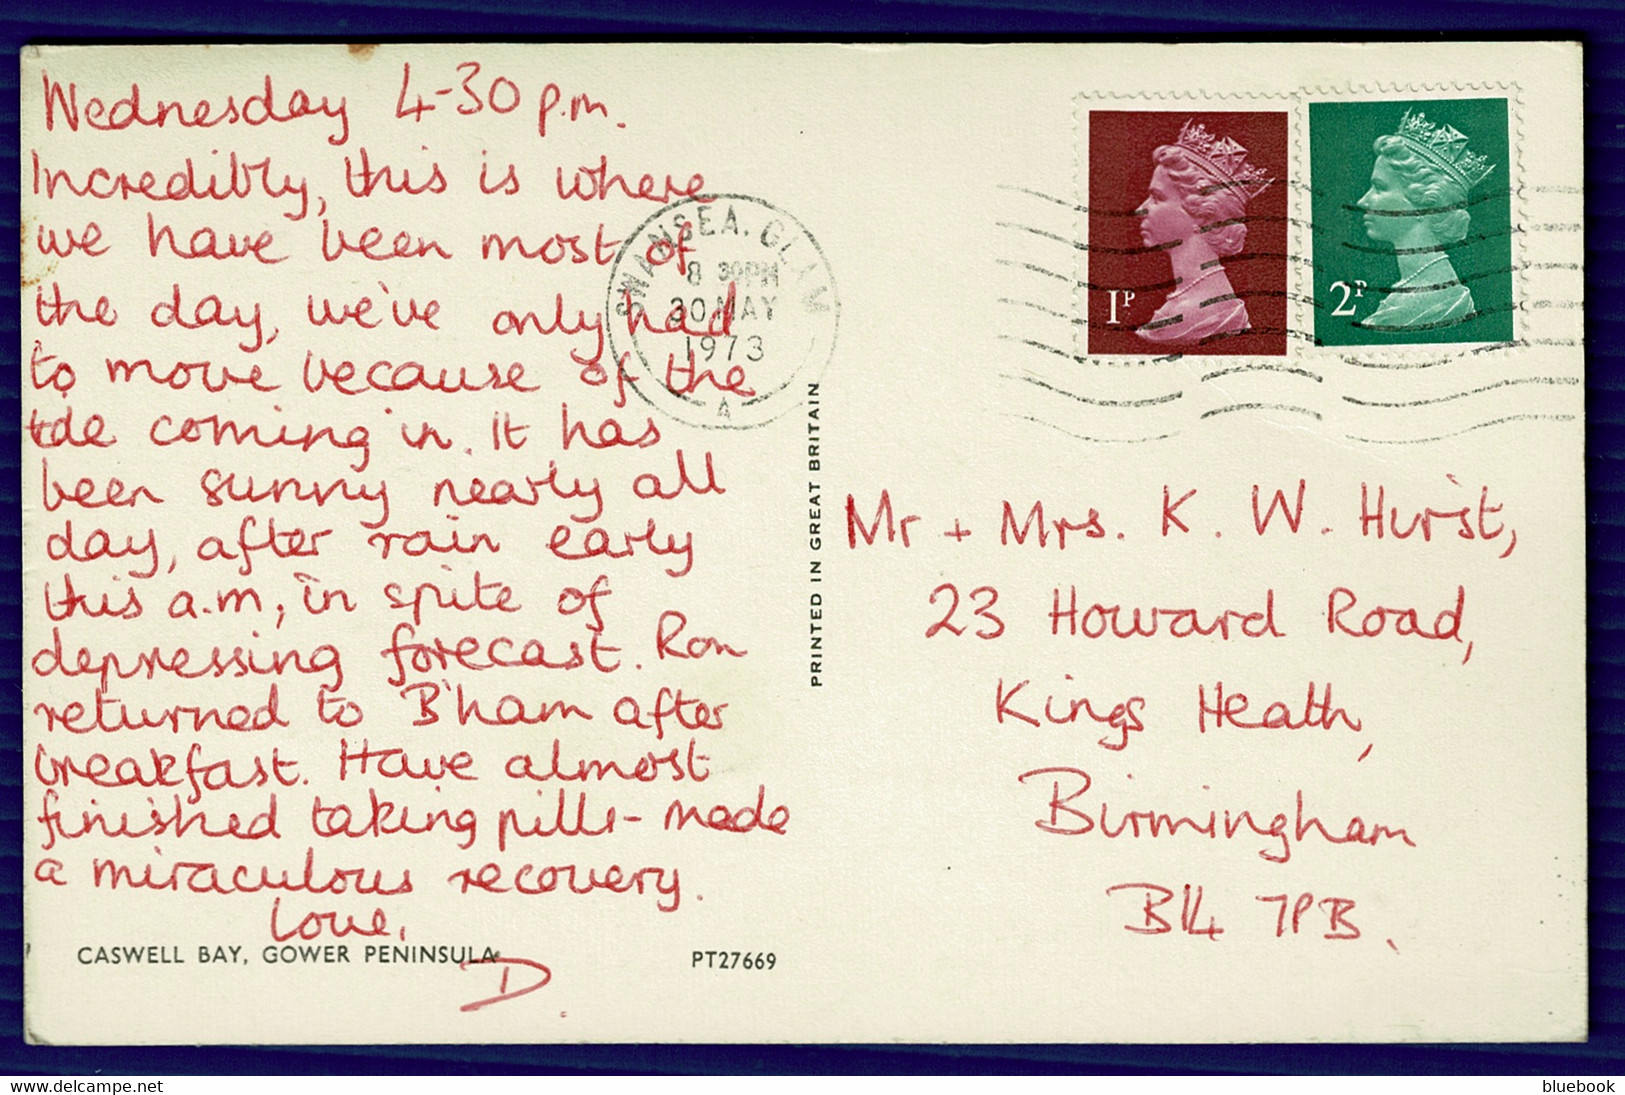 Wednesday 4-30 p.m.
Incredibly, this is where
we have been most of
the day, we've only had
to move because of the
tide coming in. It has
been sunny nearly all
day, after rain early
this a.m, in spite of
depressing forecast. Ron
returned to B'ham after
breakfast. Have almost
finished taking pills - made
a miraculous recovery.
Love,
D.
CASWELL BAY, GOWER PENINSULA
PT27669
PRINTED IN GREAT BRITAIN
SWANSEA. GLAM
8 30PM
30 MAY
1973
A
1P
2P
Mr + Mrs. K. W. Hurst,
23 Howard Road,
Kings Heath,
Birmingham
B14 7PB.
delcampe.net
bluebook